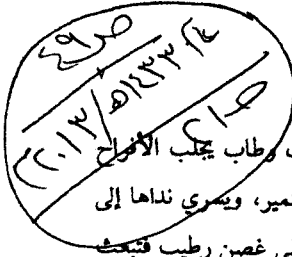 ص ٤٩
١٤٣٣هـ/٢٠١٣
ص ٢١
وطاب يجلب الأفراح
ـمير، ويسري نداها إلى
غصن رطيب فتبعث